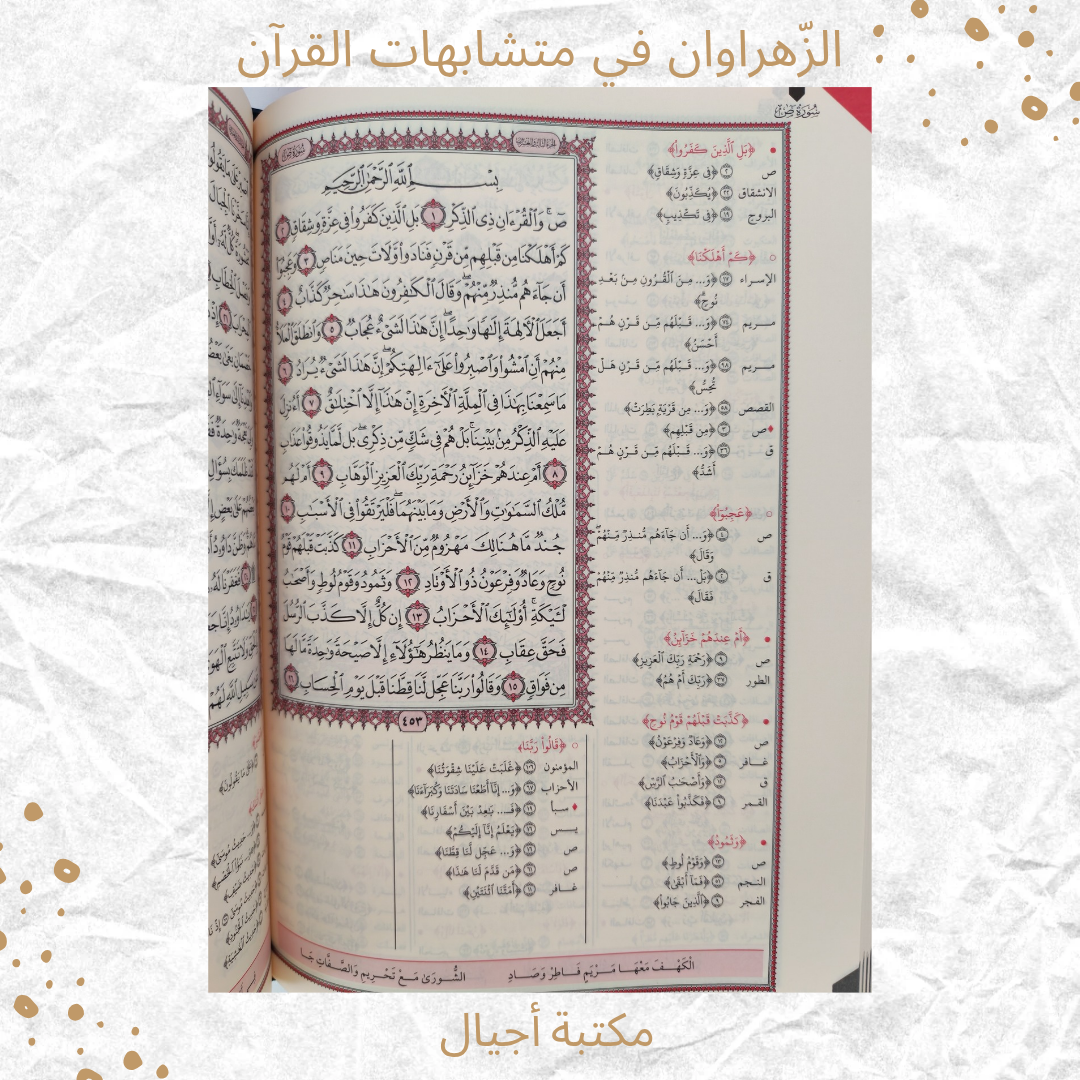 الزّهراوان في متشابهات القرآن
سُورَةُ صٓ
بِسْمِ ٱللَّهِ ٱلرَّحْمَٰنِ ٱلرَّحِيمِ
صٓ ۚ وَٱلْقُرْءَانِ ذِى ٱلذِّكْرِ ١ بَلِ ٱلَّذِينَ كَفَرُوا۟ فِى عِزَّةٍ وَشِقَاقٍ ٢
كَمْ أَهْلَكْنَا مِن قَبْلِهِم مِّن قَرْنٍ فَنَادَوا۟ وَّلَاتَ حِينَ مَنَاصٍ ٣ وَعَجِبُوٓا۟
أَن جَآءَهُم مُّنذِرٌ مِّنْهُمْ ۖ وَقَالَ ٱلْكَٰفِرُونَ هَٰذَا سَٰحِرٌ كَذَّابٌ ٤
أَجَعَلَ ٱلْءَالِهَةَ إِلَٰهًا وَٰحِدًا ۖ إِنَّ هَٰذَا لَشَىْءٌ عُجَابٌ ٥ وَٱنطَلَقَ ٱلْمَلَأُ
مِنْهُمْ أَنِ ٱمْشُوا۟ وَٱصْبِرُوا۟ عَلَىٰٓ ءَالِهَتِكُمْ ۖ إِنَّ هَٰذَا لَشَىْءٌ يُرَادُ ٦
مَا سَمِعْنَا بِهَٰذَا فِى ٱلْمِلَّةِ ٱلْءَاخِرَةِ إِنْ هَٰذَآ إِلَّا ٱخْتِلَٰقٌ ٧ أَءُنزِلَ
عَلَيْهِ ٱلذِّكْرُ مِنۢ بَيْنِنَا ۚ بَلْ هُمْ فِى شَكٍّ مِّن ذِكْرِى ۖ بَل لَّمَّا يَذُوقُوا۟ عَذَابِ
٨ أَمْ عِندَهُمْ خَزَآئِنُ رَحْمَةِ رَبِّكَ ٱلْعَزِيزِ ٱلْوَهَّابِ ٩ أَمْ لَهُم
مُّلْكُ ٱلسَّمَٰوَٰتِ وَٱلْأَرْضِ وَمَا بَيْنَهُمَا ۖ فَلْيَرْتَقُوا۟ فِى ٱلْأَسْبَٰبِ ١٠
جُندٌ مَّا هُنَالِكَ مَهْزُومٌ مِّنَ ٱلْأَحْزَابِ ١١ كَذَّبَتْ قَبْلَهُمْ قَوْمُ
نُوحٍ وَعَادٌ وَفِرْعَوْنُ ذُو ٱلْأَوْتَادِ ١٢ وَثَمُودُ وَقَوْمُ لُوطٍ وَأَصْحَٰبُ
لْـَٔيْكَةِ ۚ أُو۟لَٰٓئِكَ ٱلْأَحْزَابُ ١٣ إِن كُلٌّ إِلَّا كَذَّبَ ٱلرُّسُلَ
فَحَقَّ عِقَابِ ١٤ وَمَا يَنظُرُ هَٰٓؤُلَآءِ إِلَّا صَيْحَةً وَٰحِدَةً مَّا لَهَا
مِن فَوَاقٍ ١٥ وَقَالُوا۟ رَبَّنَا عَجِّل لَّنَا قِطَّنَا قَبْلَ يَوْمِ ٱلْحِسَابِ ١٦
٤٥٣
• ﴿بَلِ ٱلَّذِينَ كَفَرُوا۟﴾
ص ٢ ﴿فِى عِزَّةٍ وَشِقَاقٍ﴾
الانشقاق ٢٢ ﴿يُكَذِّبُونَ﴾
البروج ١٩ ﴿فِى تَكْذِيبٍ﴾
○ ﴿كَمْ أَهْلَكْنَا﴾
الإسراء ١٧ ﴿وَ... مِنَ ٱلْقُرُونِ مِنۢ بَعْدِ
نُوحٍ﴾
مريم ٧٤ ﴿وَ... قَبْلَهُم مِّن قَرْنٍ هُمْ
أَحْسَنُ﴾
مريم ٩٨ ﴿وَ... قَبْلَهُم مِّن قَرْنٍ هَلْ
تُحِسُّ﴾
القصص ٥٨ ﴿وَ... مِن قَرْيَةٍ بَطِرَتْ﴾
♦ص ٣ ﴿مِن قَبْلِهِم﴾
ق ٣٦ ﴿وَ... قَبْلَهُم مِّن قَرْنٍ هُمْ
أَشَدُّ﴾
○ ﴿عَجِبُوٓا۟﴾
ص ٤ ﴿وَ... أَن جَآءَهُم مُّنذِرٌ مِّنْهُمْ ۖ
وَقَالَ﴾
ق ٢ ﴿بَلْ... أَن جَآءَهُم مُّنذِرٌ مِّنْهُمْ
فَقَالَ﴾
• ﴿أَمْ عِندَهُمْ خَزَآئِنُ﴾
ص ٩ ﴿رَحْمَةِ رَبِّكَ ٱلْعَزِيزِ﴾
الطور ٣٧ ﴿رَبِّكَ أَمْ هُمُ﴾
• ﴿كَذَّبَتْ قَبْلَهُمْ قَوْمُ نُوحٍ﴾
ص ١٢ ﴿وَعَادٌ وَفِرْعَوْنُ﴾
غافر ٥ ﴿وَٱلْأَحْزَابُ﴾
ق ١٢ ﴿وَأَصْحَٰبُ ٱلرَّسِّ﴾
القمر ٩ ﴿فَكَذَّبُوا۟ عَبْدَنَا﴾
• ﴿وَثَمُودُ﴾
ص ١٣ ﴿وَقَوْمُ لُوطٍ﴾
النجم ٥١ ﴿فَمَآ أَبْقَىٰ﴾
الفجر ٩ ﴿ٱلَّذِينَ جَابُوا۟﴾
○ ﴿قَالُوا۟ رَبَّنَا﴾
المؤمنون ١٠٦ ﴿غَلَبَتْ عَلَيْنَا شِقْوَتُنَا﴾
الأحزاب ٦٧ ﴿وَ... إِنَّآ أَطَعْنَا سَادَتَنَا وَكُبَرَآءَنَا﴾
♦ سبأ ١٩ ﴿فَـ... بَٰعِدْ بَيْنَ أَسْفَارِنَا﴾
يس ١٦ ﴿يَعْلَمُ إِنَّآ إِلَيْكُمْ﴾
ص ١٦ ﴿وَ... عَجِّل لَّنَا قِطَّنَا﴾
ص ٦١ ﴿مَن قَدَّمَ لَنَا هَٰذَا﴾
غافر ١١ ﴿أَمَتَّنَا ٱثْنَتَيْنِ﴾
الْكَهْفَ مَعْهَا مَرْيَمٍ فَاطِرْ وَصَادِ الشُّورَىٰ مَعْ تَحْرِيمِ وَالصَّفَّاتِ جَا
مكتبة أجيال